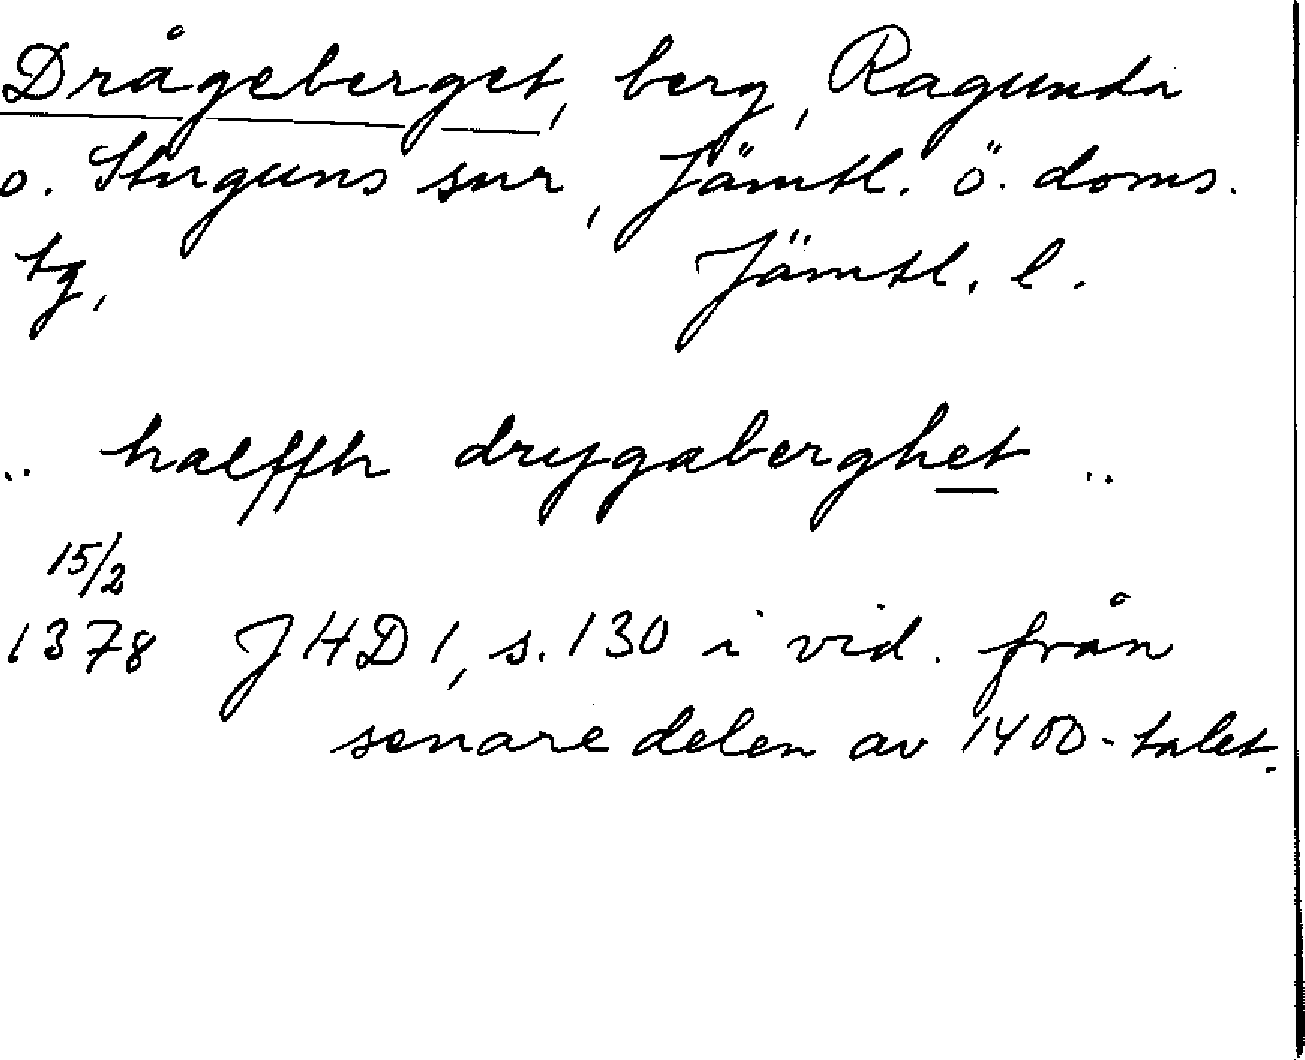 Drågeberget, berg, Ragunda
o. Stuguns snr, Jämtl. ö. doms.
tg, Jämtl. l.
.. halffth drygaberghet ..
15/2
1378 JHD 1, s. 130 i vid. från
senare delen av 1400-talet.